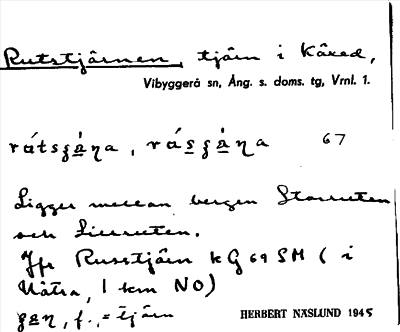 Rutstjärnen, tjärn i Kåxed,
Vibyggerå sn, Ång. s. doms. tg, Vrnl. 1.
67
Ligger mellan bergen Storruten
och Lillruten.
Jfr Russtjärn kG 69 SM ( i
Nätra, 1 km NO)
f., = tjärn
HERBERT NÄSLUND 1945